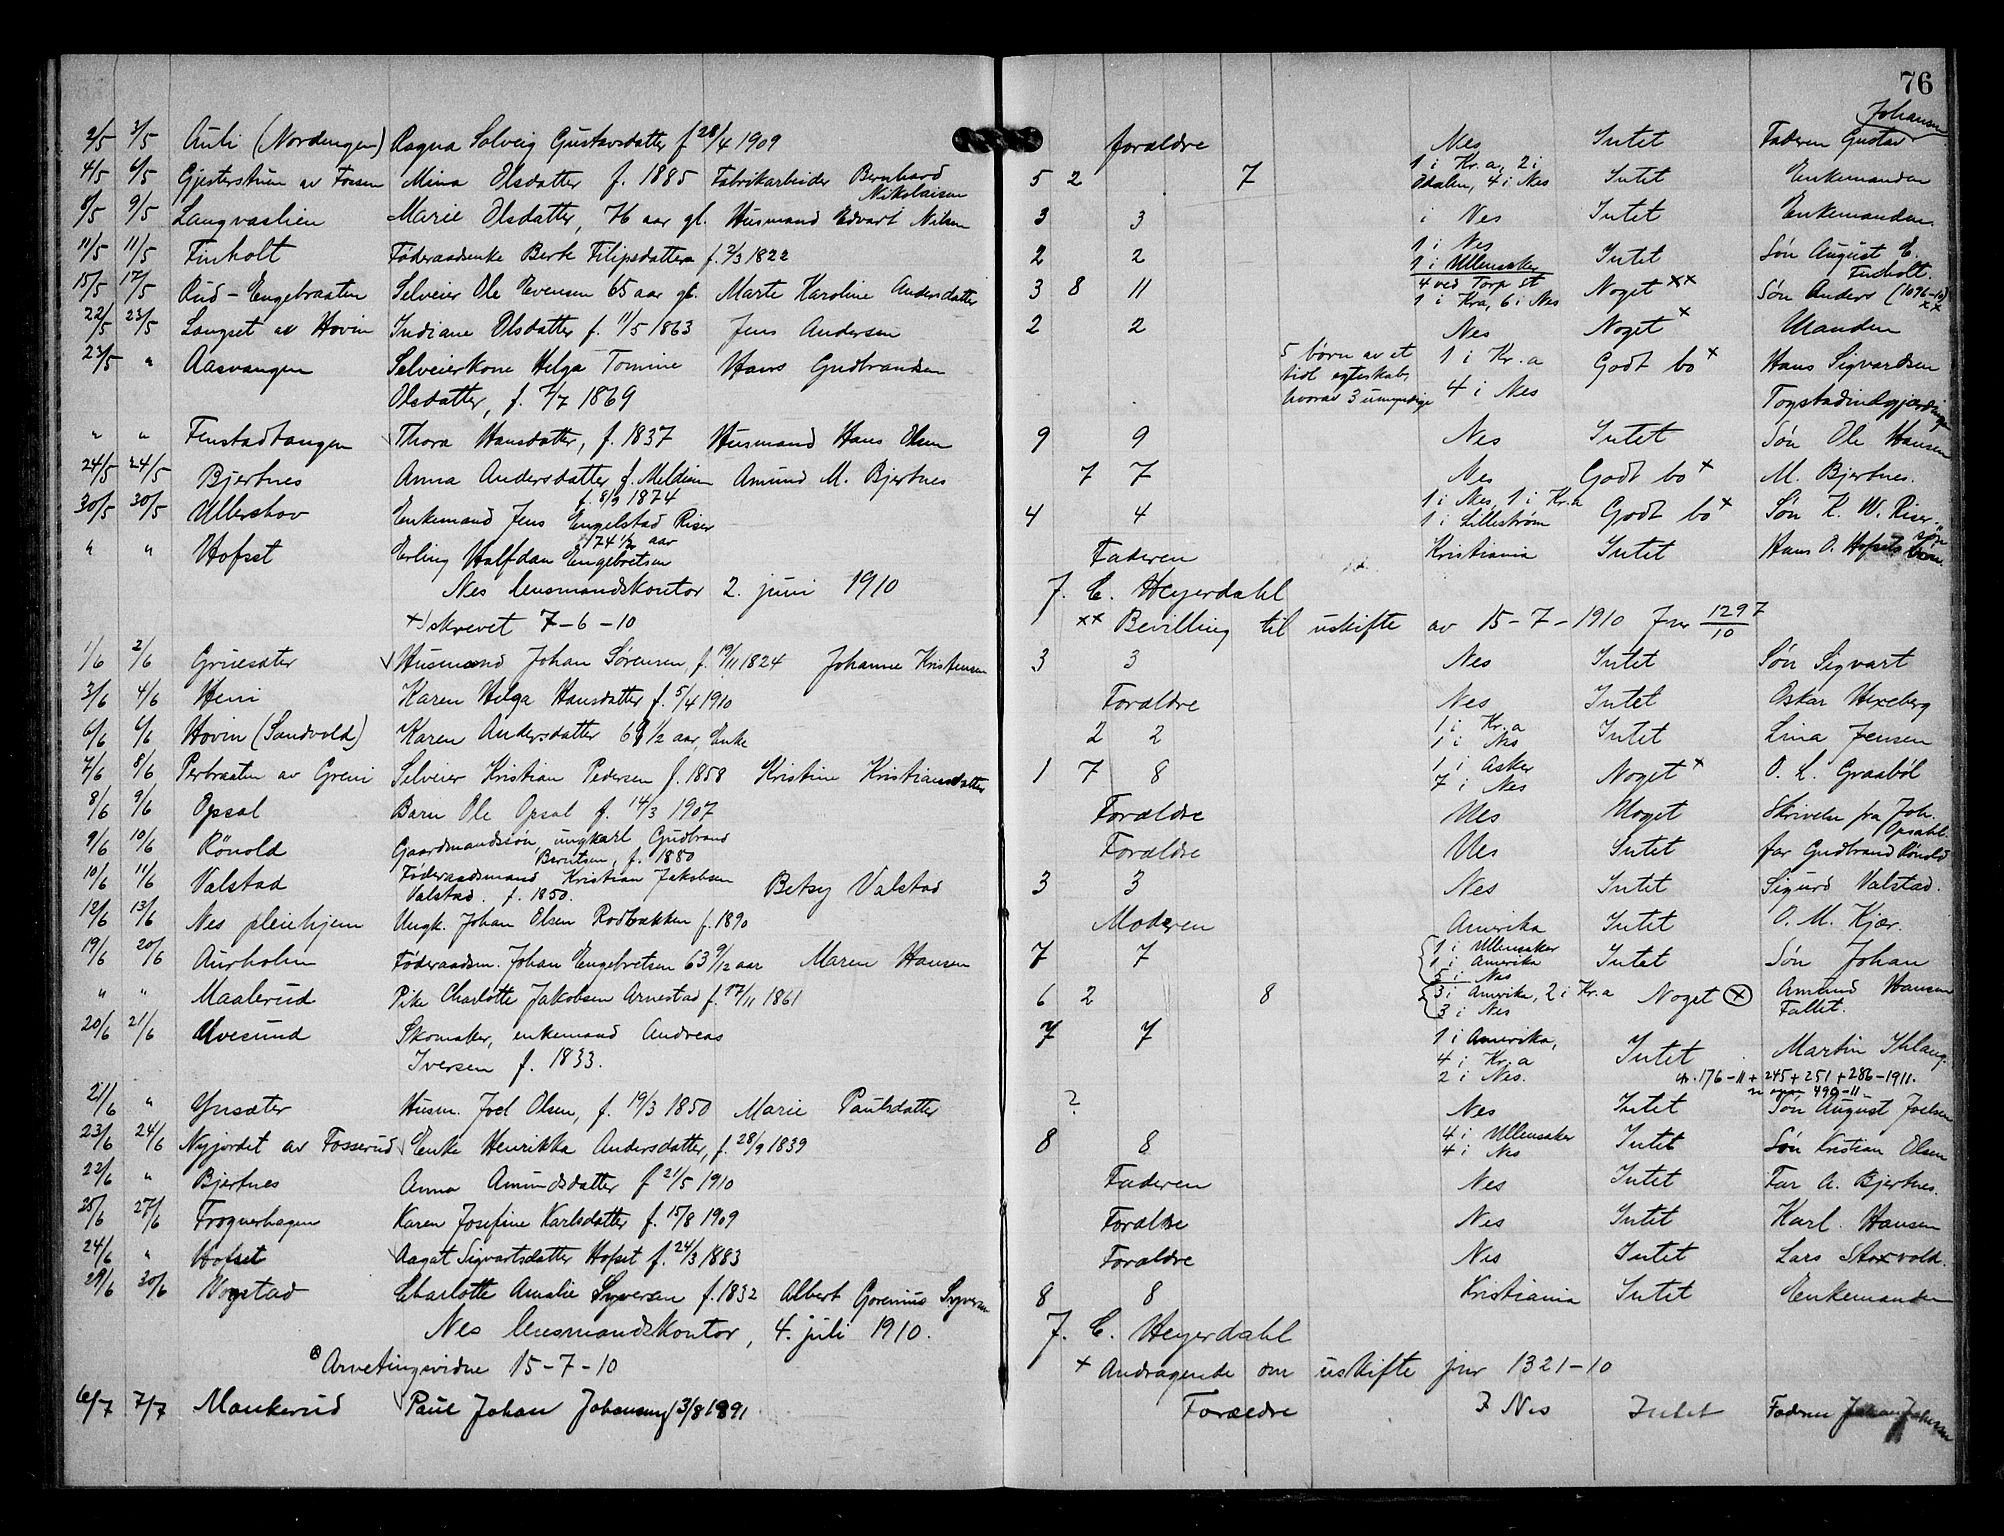 76
2/5 3/5 Auli (Nordengen) Ragna Solveig Gustavsdatter f 28/4 1909 foraldre Nes Intet Faderen Gustav Johansen
4/5 6/5 Gjesterstuen av Fossen Mina Olsdatter f. 1885 Fabrikarbeider Bernhard Nikolaisen 5 2 7 1 i Kr.a, 2 i Odalen, 4 i Nes Intet Enkemanden
8/5 9/5 Langvaslien Marie Olsdatter, 76 aar gl. Husmand Edvart Nilsen 3 3 i Nes Intet Enkemanden
11/5 11/5 Finholt Føderaadsenke Berte Filipsdatter f. 2/3 1822 2 2 1 i Nes 1 i Ullensaker Intet Søn August E. Finholt.
15/5 17/5 Rud-Engebraaten Selveier Ole Evensen 65 aar gl. Marte Karoline Andersdatter 3 8 11 4 ved Torp st 1 i Kra, 6 i Nes Noget xx Søn Anders (1096-10) xx
22/5 23/5 Langset av Hovin Indiane Olsdatter f. 11/5 1863 Jens Andersen 2 2 Nes Noget x Manden
23/5 " Aasvangen Selveierkone Helga Tomine Hans Gudbrandsen 5 børn av et tidl egteskab, hvorav 3 umyndige 1 i Kr.a Godt bo x Hans Sigvardsen
Olsdatter, f. 2/7 1869 4 i Nes Togstadindgjærdingen
" " Fenstadtangen Thora Hansdatter, f. 1837 Husmand Hans Olsen 9 9 Nes Intet Søn Ole Hansen
24/5 24/5 Bjertnes Anna Andersdatter f. Meldium f. 8/9 1874 Amund M. Bjertnes 7 7 Nes Godt bo x M. Bjertnes.
30/5 30/5 Ullershov Enkemand Jens Engelstad Riser 74 1/2 aar 4 4 1 i Nes, 1 i Kr.a 1 i Lillestrøm Godt bo x Søn K. W. Riser
" " Hofset Erling Halfdan Engebretsen Faderen Kristiania Intet Hans O. Hofset
Nes lensmandskontor 2. juni 1910 J. C. Heyerdahl
x) skrevet 7-6-10 xx Bevilling til uskifte av 15-7-1910 Jnr 1297/10
1/6 2/6 Gruesæter Husmand Johan Sørensen, f. 19/11 1824 Johanne Kristensen 3 3 Nes Intet Søn Sigvart
3/6 4/6 Heni Karen Helga Hansdatter f. 5/4 1910 Foraldre Nes Intet Oskar Hexeberg
6/6 6/6 Hovin (Sandvold) Karen Andersdatter 69 1/2 aar, Enke 2 2 1 i Kr.a 1 i Nes Intet Lina Jensen
7/6 8/6 Perbraaten av Greni Selveier Kristian Pedersen f. 1858 Kristine Kristiansdatter 1 7 8 1 i Asker 7 i Nes Noget x O. L. Graabøl
8/6 9/6 Opsal Barn Ole Opsal f. 14/3 1907 Foraldre Nes Noget Skrivelse fra Joh. Opsahl
9/6 10/6 Rönold Gaardmandssön, ungkarl Gudbrand Berntsen, f. 1880 Foraldre Nes Intet far Gudbrand Rönold
10/6 11/6 Valstad Føderaadsmand Kristian Jakobsen Valstad. f. 1850. Betsy Valstad 3 3 Nes Intet Sigurd Valstad.
12/6 13/6 Nes pleiehjem Ungk. Johan Olsen Rodbakken f. 1890 Moderen Amerika Intet O. M. Kjær.
19/6 20/6 Aurholm Føderaadsm. Johan Engebretsen 63 9/12 aar Maren Hansen 7 7 1 i Ullensaker 1 i Amerika 5 i Nes Intet Søn Johan
" " Maalerud Pike Charlotte Jakobsen Arnestad f. 17/11 1861 6 2 8 3 i Amerika, 2 i Kr.a 3 i Nes Noget (x) Amund Hansen Fallet.
20/6 21/6 Uvesund Skomaker, enkemand Andreas Iversen f. 1833. 7 7 1 i Amerika, 4 i Kr.a 2 i Nes. Intet Martin Ihlang.
nr. 176-11 + 245 + 251 + 286-1911.
490-11-
21/6 " Ynsæter Husm. Joel Olsen, f. 19/3 1850 Marie Paulsdatter ? Nes Intet Søn August Joelsen
23/6 24/6 Nyjordet av Fosserud Enke Henrikka Andersdatter, f. 28/9 1839 8 8 4 i Ullensaker 4 i Nes Intet Søn Kristian Olsen
22/6 " Bjertnes Anna Amundsdatter f 21/5 1910 Faderen Nes Intet Far A. Bjertnes.
25/6 27/6 Frognerhagen Karen Josefine Karlsdatter f. 15/8 1909 Foraldre Nes Intet Karl Hansen
24/6 " Hofset Aagot Sigvartsdatter Hofset f. 24/3 1883 Foraldre Nes Intet Lars Storvold.
29/6 30/6 Vogstad Charlotte Amalie Syversen f. 1832 Albert Gorenius Syversen 8 8 Kristiania Intet Enkemanden
Nes lensmandskontor, 4. juli 1910. J. C. Heyerdahl
(x) Arvetingsvidne 15-7-10 x Andragende om uskifte jnr 1321-10
6/7 7/7 Mankerud Paul Johan Johansen f 3/8 1891 Forældre I Nes Intet Faderen Johan Johansen